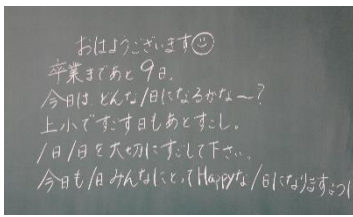 おはようございます☺
卒業まであと9日。
今日はどんな1日になるかな〜?
上小ですごす日もあとすこし。
1日1日を大切にすごして下さい。
今日も1日みんなにとってHappyな1日になりますように